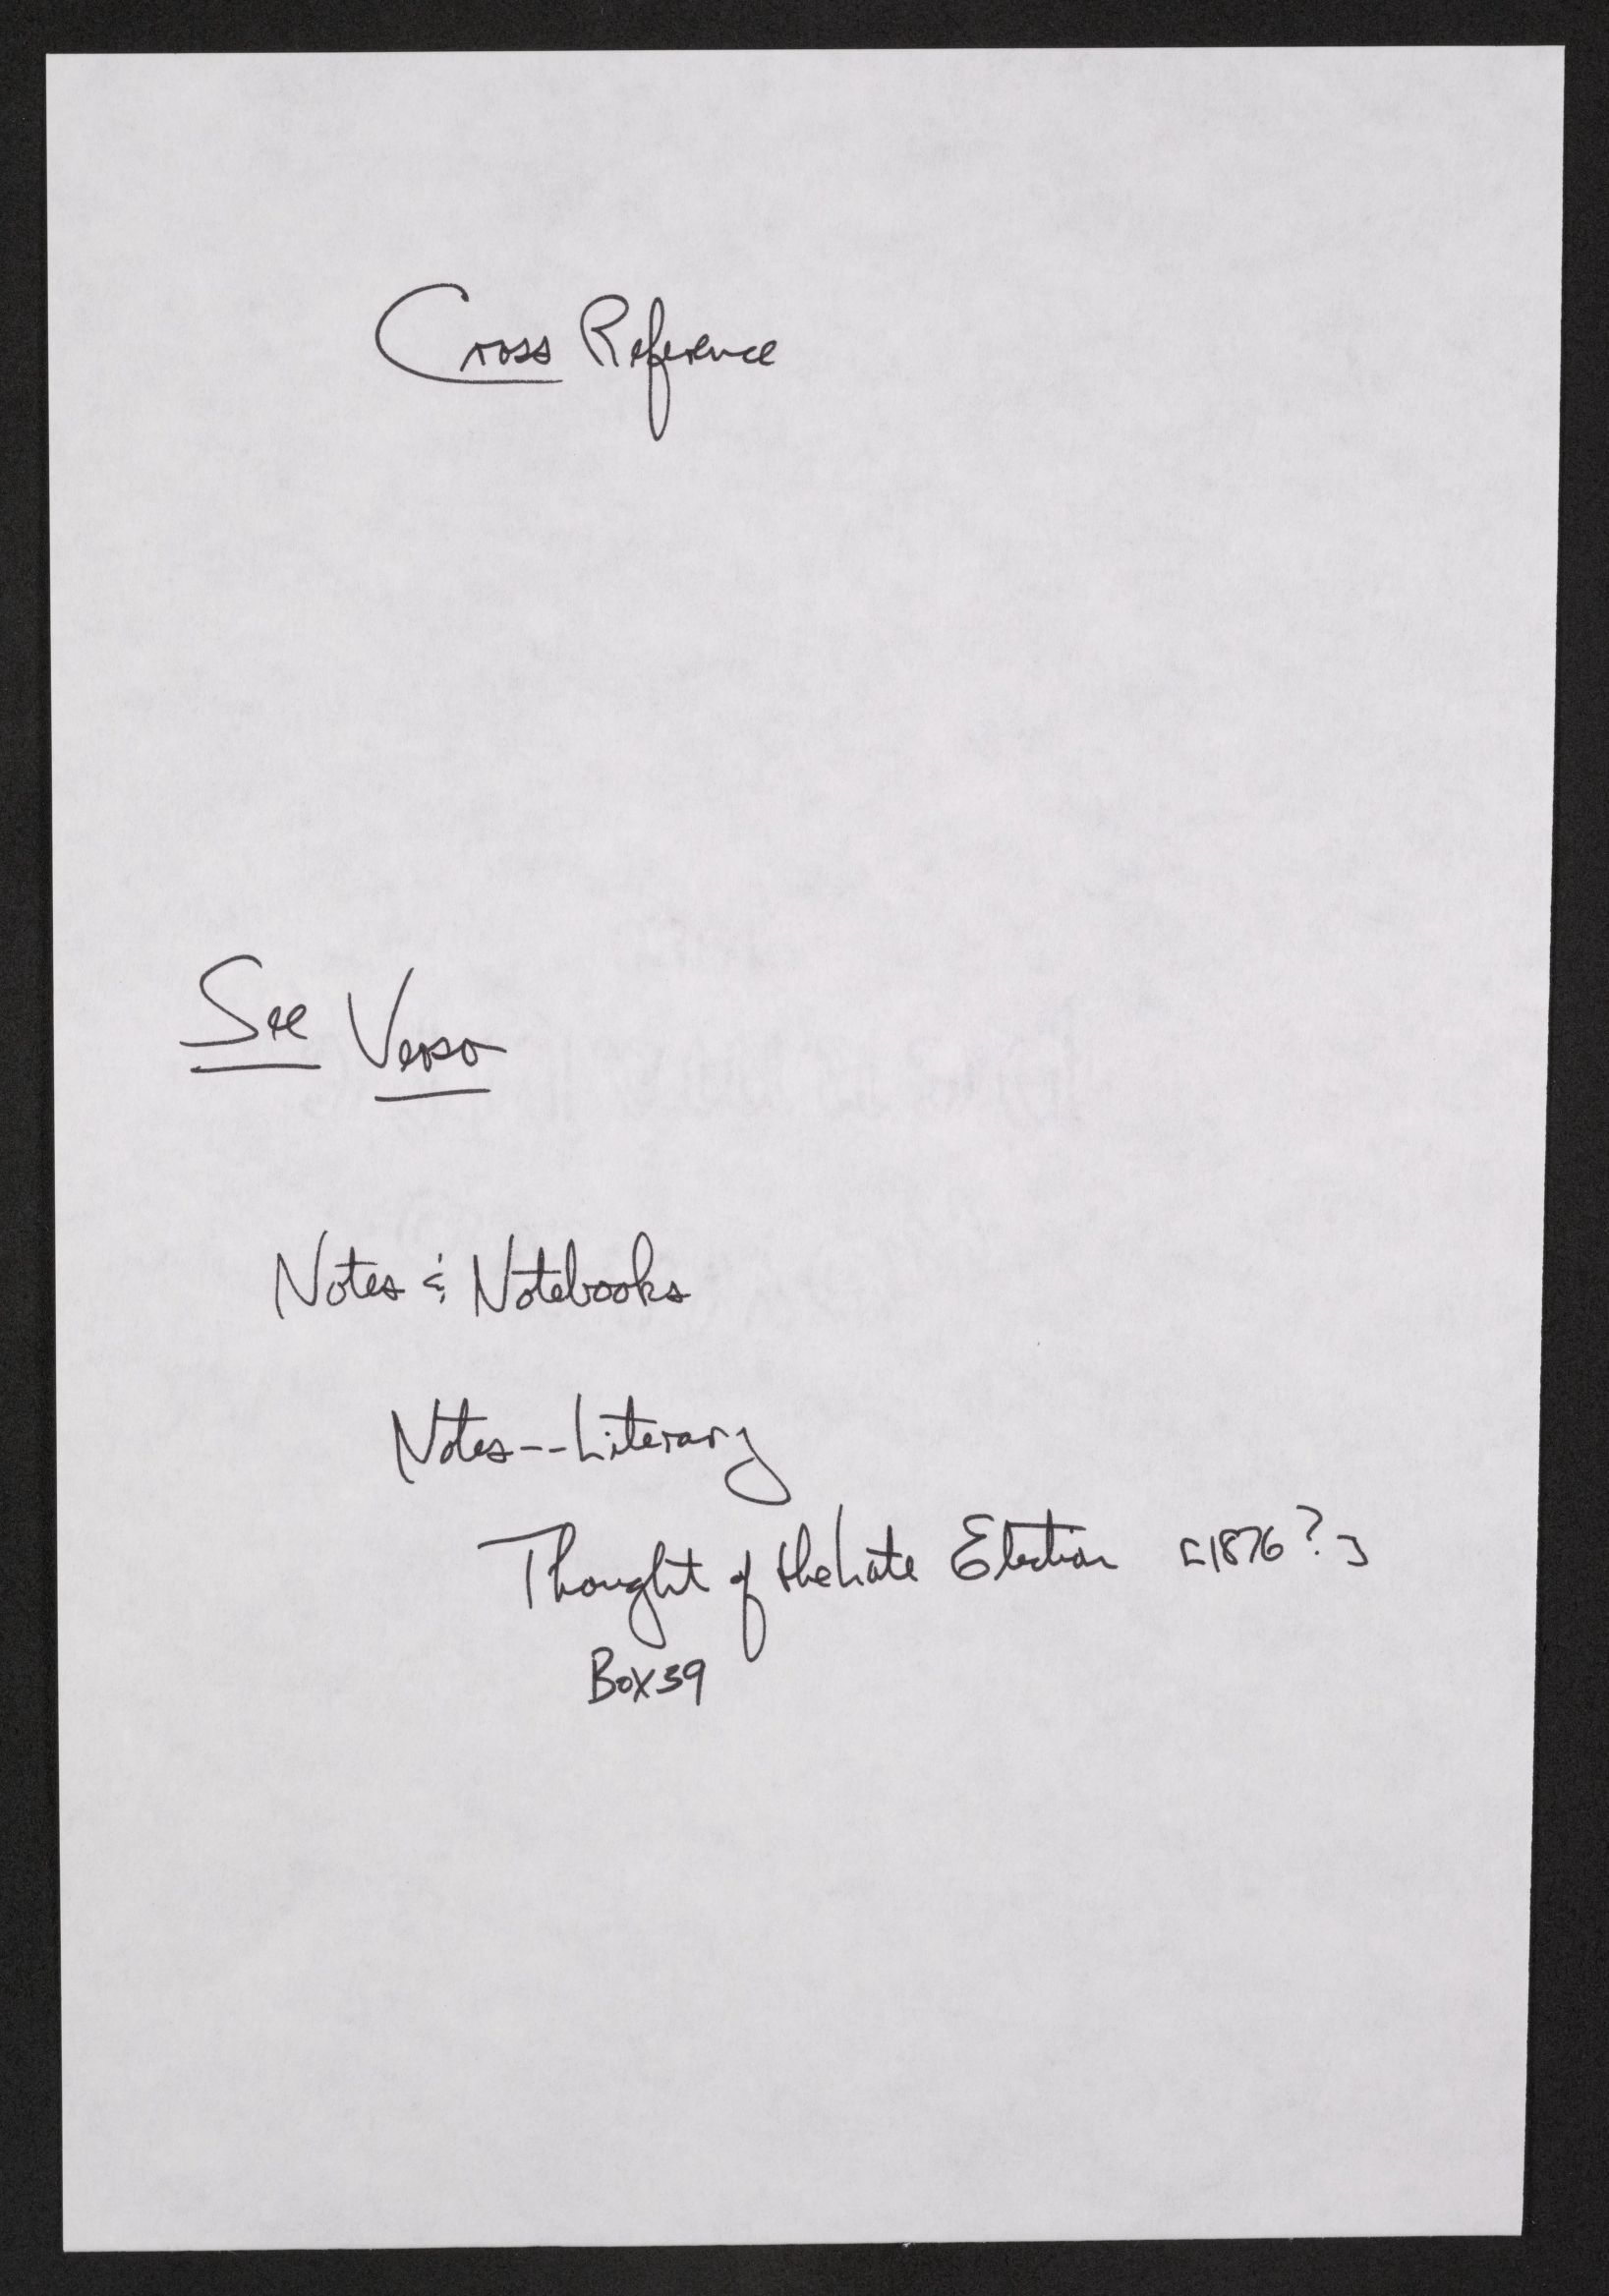 Cross Reference
See Verso
Notes & Notebooks
Notes--Literary
Thought of the Late Election [1876?]
Box 39